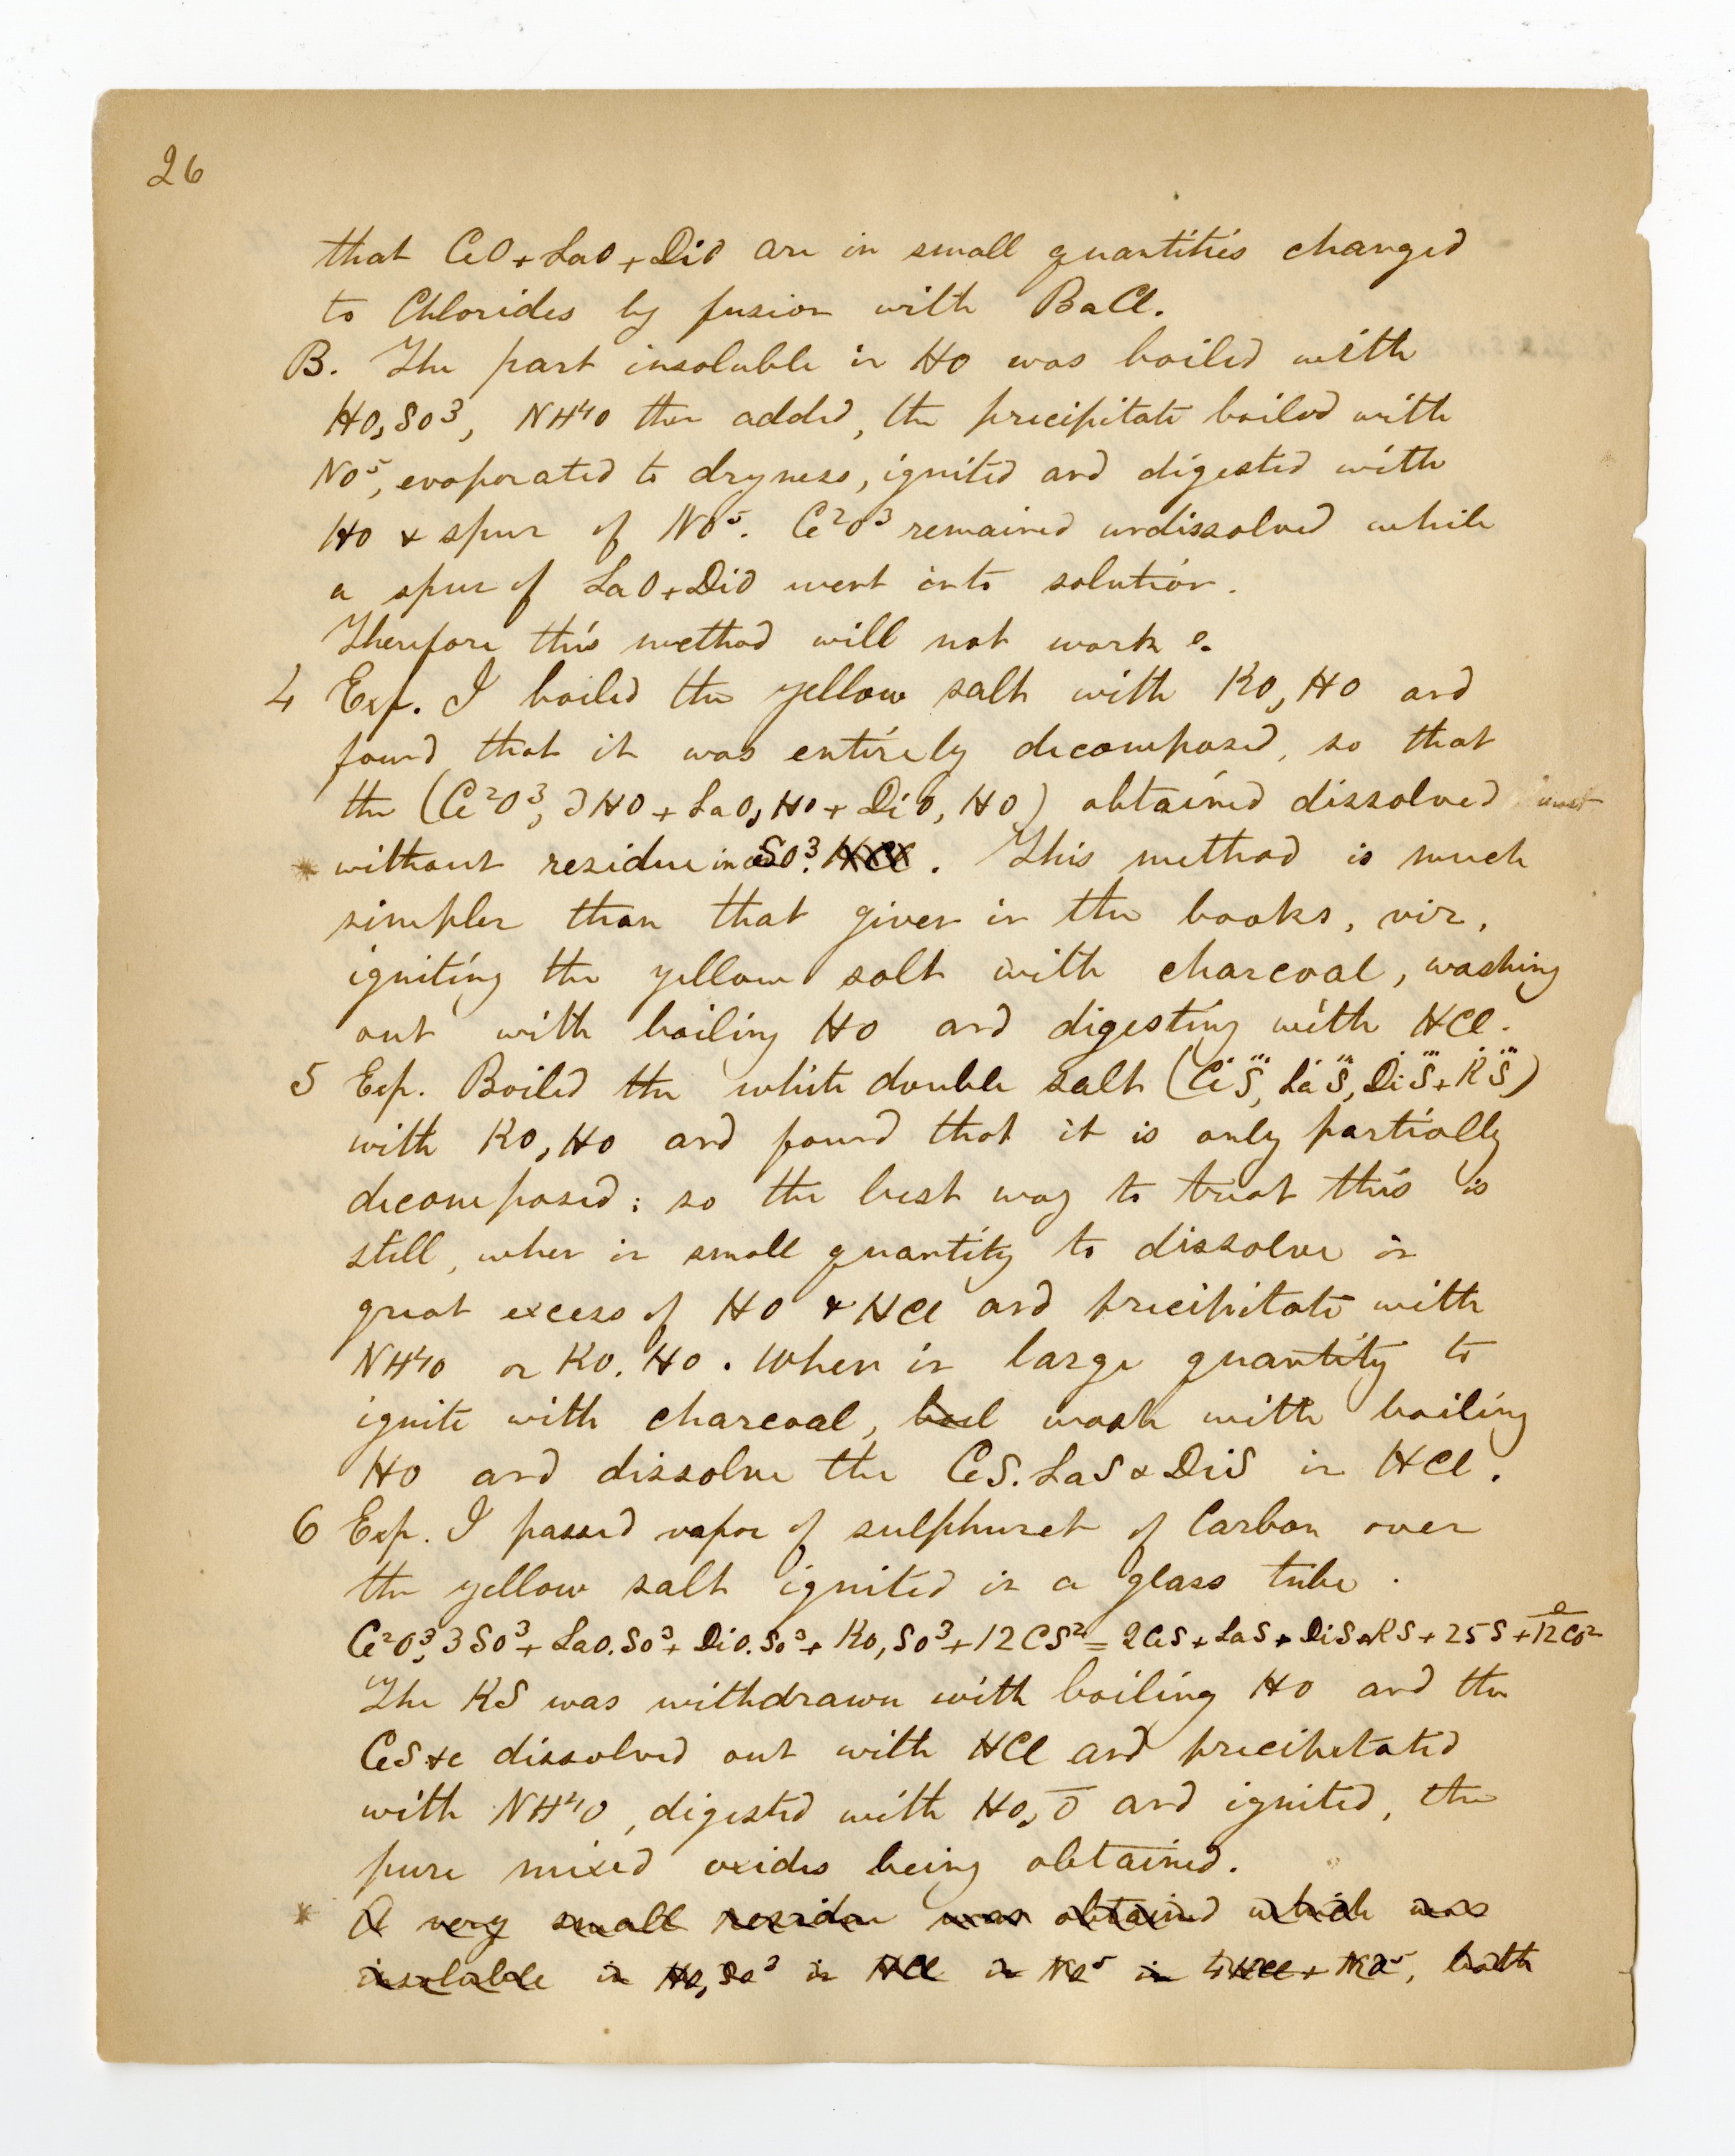 26
that CeO+LaO+DiO are in small quantities changed
to Chlorides by fusion with BaCl.
B. The part insoluble in HO was boiled with
HO,SO³, NH⁴O then added, the precipitate boiled with
NO⁵, evaporated to dryness, ignited and digested with
HO & spur of NO⁵. Ce²O³ remained undissolved while
a spur of LaO+DiO went into solution.
Therefore this method will not work e.
4 Exp. I boiled the yellow salt with KO,HO and
found that it was entirely decomposed, so that
the (Ce²O³, 3HO + LaO,HO + DiO,HO) obtained dissolved
* without residue in SO³. HCl. This method is much
simpler than that given in the books, viz,
igniting the yellow salt with charcoal, washing
out with boiling HO and digesting with HCl.
5 Exp. Boiled the white double salt (Ċe S⃛, L̇a S⃛, Ḋi S⃛ + K̇ S⃛)
with KO,HO and found that it is only partially
decomposed: so the best way to treat this is
still, when in small quantity to dissolve in
great excess of HO & HCl and precipitate with
NH⁴O or KO.HO. When in large quantity to
ignite with charcoal, boil wash with boiling
HO and dissolve the CeS. LaS & DiS in HCl.
6 Exp. I passed vapor of sulphuret of Carbon over
the yellow salt ignited in a glass tube.
Ce²O³,3SO³ + LaO.SO³ + DiO.SO³ + KO,SO³ + 12CS² = 2CeS + LaS + DiS + KS + 25S + 12CO²
The KS was withdrawn with boiling HO and the
CeS &c dissolved out with HCl and precipitated
with NH⁴O, digested with HO,O̅ and ignited, the
pure mixed oxides being obtained.
* A very small residue was obtained which was
insoluble in HO,SO³ in HCl in NO⁵ in 4HCl + NO⁵, both